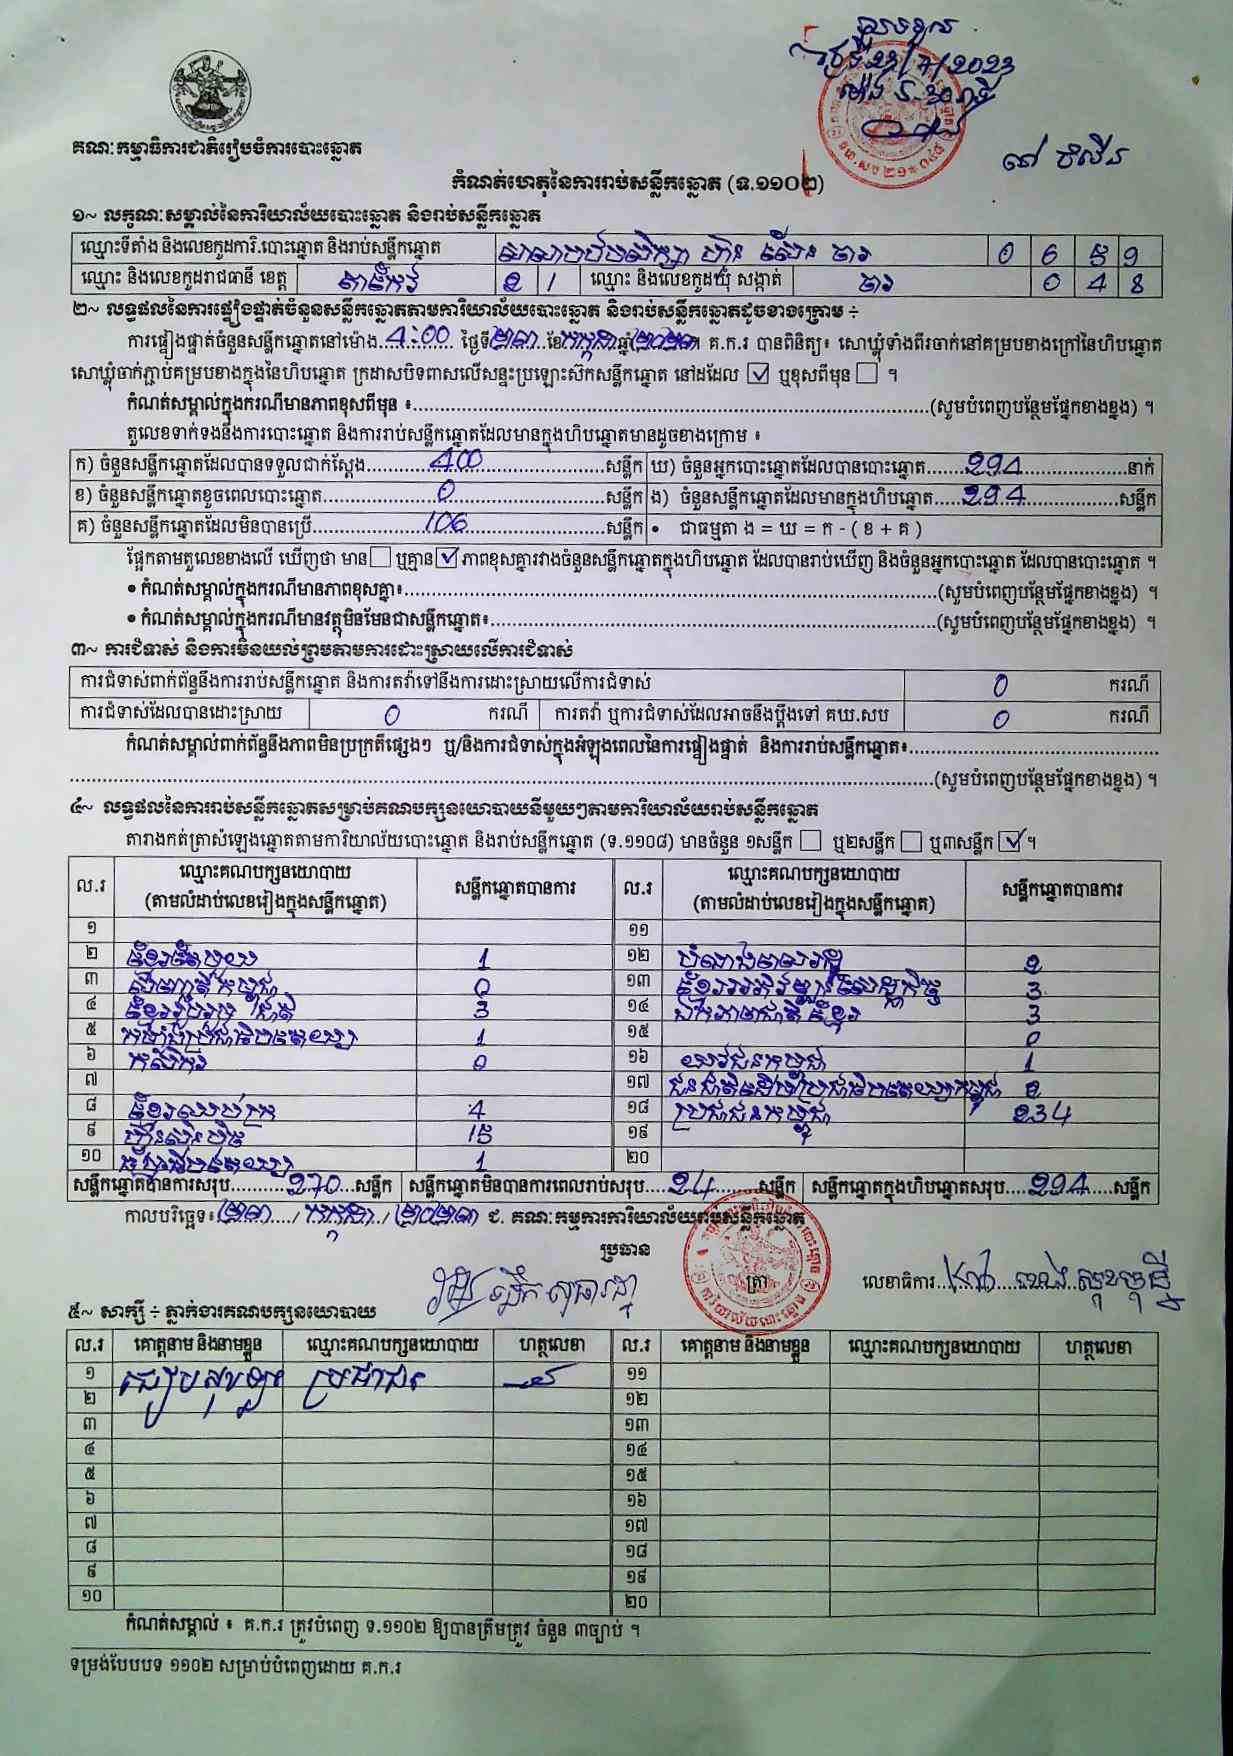 ស្រាមខ្លួល
ថ្ងៃទី23/7/2023
ម៉ោង 5:30នាទី
គណៈកម្មាធិការជាតិរៀបចំការបោះឆ្នោត
កំណត់ហេតុនៃការរាប់សន្លឹកឆ្នោត (ទ.១១០២)
១~ លក្ខណៈសម្គាល់នៃការិយាល័យបោះឆ្នោត និងរាប់សន្លឹកឆ្នោត
ឈ្មោះទីតាំង និងលេខកូដការិ.បោះឆ្នោត និងរាប់សន្លឹកឆ្នោត សាលាបឋមសិក្សា ហ៊ុន សែន 0 6 5 9
ឈ្មោះ និងលេខកូដរាជធានី ខេត្ត តាកែវ 2 1 ឈ្មោះ និងលេខកូដឃុំ សង្កាត់ 0 4 8
២~ លទ្ធផលនៃការផ្ទៀងផ្ទាត់ចំនួនសន្លឹកឆ្នោតតាមការិយាល័យបោះឆ្នោត និងរាប់សន្លឹកឆ្នោតដូចខាងក្រោម ÷
ការផ្ទៀងផ្ទាត់ចំនួនសន្លឹកឆ្នោតនៅម៉ោង 4:00 ថ្ងៃទី២៣ ខែកក្កដា ឆ្នាំ២០២៣ គ.ក.រ បានពិនិត្យ៖ សោឃ្លុំទាំងពីរចាក់នៅគម្របខាងក្រៅនៃហិបឆ្នោត
សោឃ្លុំចាក់ភ្ជាប់គម្របខាងក្នុងនៃហិបឆ្នោត ក្រដាសបិទពាសលើសន្ទះប្រឡោះស៊កសន្លឹកឆ្នោត នៅដដែល ☑ ឬខុសពីមុន ☐ ។
កំណត់សម្គាល់ក្នុងករណីមានភាពខុសពីមុន ៖ (សូមបំពេញបន្ថែមផ្នែកខាងខ្នង) ។
តួលេខទាក់ទងនឹងការបោះឆ្នោត និងការរាប់សន្លឹកឆ្នោតដែលមានក្នុងហិបឆ្នោតមានដូចខាងក្រោម ៖
ក) ចំនួនសន្លឹកឆ្នោតដែលបានទទួលជាក់ស្តែង 400 សន្លឹក ឃ) ចំនួនអ្នកបោះឆ្នោតដែលបានបោះឆ្នោត 294 នាក់
ខ) ចំនួនសន្លឹកឆ្នោតខូចពេលបោះឆ្នោត 0 សន្លឹក ង) ចំនួនសន្លឹកឆ្នោតដែលមានក្នុងហិបឆ្នោត 294 សន្លឹក
គ) ចំនួនសន្លឹកឆ្នោតដែលមិនបានប្រើ 106 សន្លឹក • ជាធម្មតា ង = ឃ = ក - ( ខ + គ )
ផ្អែកតាមតួលេខខាងលើ ឃើញថា មាន ☐ ឬគ្មាន ☑ ភាពខុសគ្នារវាងចំនួនសន្លឹកឆ្នោតក្នុងហិបឆ្នោត ដែលបានរាប់ឃើញ និងចំនួនអ្នកបោះឆ្នោត ដែលបានបោះឆ្នោត ។
• កំណត់សម្គាល់ក្នុងករណីមានភាពខុសគ្នា៖ (សូមបំពេញបន្ថែមផ្នែកខាងខ្នង) ។
• កំណត់សម្គាល់ក្នុងករណីមានវត្ថុមិនមែនជាសន្លឹកឆ្នោត៖ (សូមបំពេញបន្ថែមផ្នែកខាងខ្នង) ។
៣~ ការជំទាស់ និងការមិនយល់ព្រមតាមការដោះស្រាយលើការជំទាស់
ការជំទាស់ពាក់ព័ន្ធនឹងការរាប់សន្លឹកឆ្នោត និងការតវ៉ាទៅនឹងការដោះស្រាយលើការជំទាស់ 0 ករណី
ការជំទាស់ដែលបានដោះស្រាយ 0 ករណី ការតវ៉ា ឬការជំទាស់ដែលអាចនឹងប្តឹងទៅ គឃ.សប 0 ករណី
កំណត់សម្គាល់ពាក់ព័ន្ធនឹងភាពមិនប្រក្រតីផ្សេងៗ ឬ/និងការជំទាស់ក្នុងអំឡុងពេលនៃការផ្ទៀងផ្ទាត់ និងការរាប់សន្លឹកឆ្នោត៖
(សូមបំពេញបន្ថែមផ្នែកខាងខ្នង) ។
៤~ លទ្ធផលនៃការរាប់សន្លឹកឆ្នោតសម្រាប់គណបក្សនយោបាយនីមួយៗតាមការិយាល័យរាប់សន្លឹកឆ្នោត
តារាងកត់ត្រាសំឡេងឆ្នោតតាមការិយាល័យបោះឆ្នោត និងរាប់សន្លឹកឆ្នោត (ទ.១១០៨) មានចំនួន ១សន្លឹក ☐ ឬ២សន្លឹក ☐ ឬ៣សន្លឹក ☑ ។
ល.រ ឈ្មោះគណបក្សនយោបាយ (តាមលំដាប់លេខរៀងក្នុងសន្លឹកឆ្នោត) សន្លឹកឆ្នោតបានការ ល.រ ឈ្មោះគណបក្សនយោបាយ (តាមលំដាប់លេខរៀងក្នុងសន្លឹកឆ្នោត) សន្លឹកឆ្នោតបានការ
១ ១១
២ ខ្មែរតែមួយ 1 ១២ 2
៣ សញ្ជាតិកម្ពុជា 0 ១៣ ខ្មែរអភិវឌ្ឍន៍សេដ្ឋកិច្ច 3
៤ ខ្មែររួបរួមជាតិ 3 ១៤ ឯកភាពជាតិខ្មែរ 3
៥ កម្លាំងប្រជាធិបតេយ្យ 1 ១៥ 0
៦ កសិករ 0 ១៦ យុវជនកម្ពុជា 1
៧ ១៧ ជនជាតិដើមប្រជាធិបតេយ្យកម្ពុជា 2
៨ ខ្មែរឈប់ក្រ 4 ១៨ ប្រជាជនកម្ពុជា 234
៩ ហ្វ៊ុនស៊ិនប៉ិច 15 ១៩
១០ 1 ២០
សន្លឹកឆ្នោតបានការសរុប 270 សន្លឹក សន្លឹកឆ្នោតមិនបានការពេលរាប់សរុប 24 សន្លឹក សន្លឹកឆ្នោតក្នុងហិបឆ្នោតសរុប 294 សន្លឹក
កាលបរិច្ឆេទ៖ ២៣ / កក្កដា / ២០២៣ ជ. គណៈកម្មការការិយាល័យរាប់សន្លឹកឆ្នោត
ប្រធាន
ត្រា
លេខាធិការ
៥~ សាក្សី ÷ ភ្នាក់ងារគណបក្សនយោបាយ
ល.រ គោត្តនាម និងនាមខ្លួន ឈ្មោះគណបក្សនយោបាយ ហត្ថលេខា ល.រ គោត្តនាម និងនាមខ្លួន ឈ្មោះគណបក្សនយោបាយ ហត្ថលេខា
១ ប្រជាជន ១១
២ ១២
៣ ១៣
៤ ១៤
៥ ១៥
៦ ១៦
៧ ១៧
៨ ១៨
៩ ១៩
១០ ២០
កំណត់សម្គាល់ ៖ គ.ក.រ ត្រូវបំពេញ ទ.១១០២ ឱ្យបានត្រឹមត្រូវ ចំនួន ៣ច្បាប់ ។
ទម្រង់បែបបទ ១១០២ សម្រាប់បំពេញដោយ គ.ក.រ